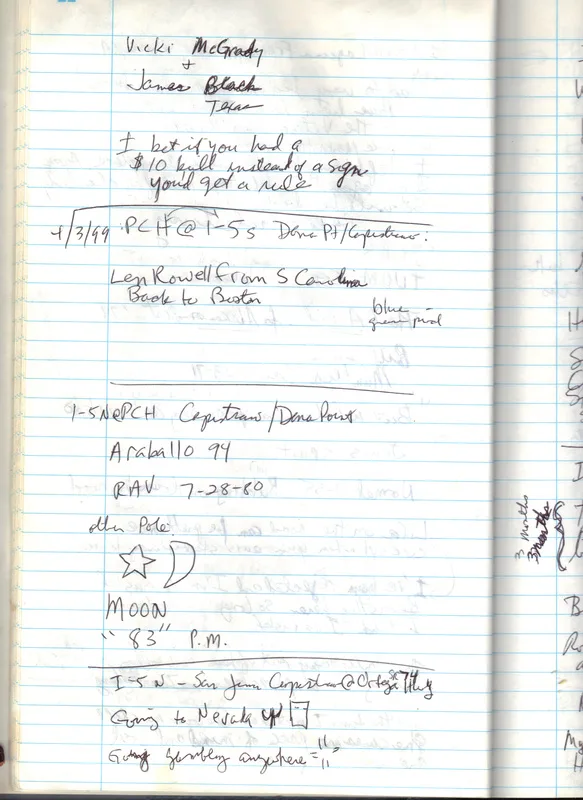 Vicki McGrady
+
James Black
Texas
I bet if you had a
$10 bill instead of a sign
you'd get a ride
4/3/99 PCH @ I-5 s Dana Pt/Capistrano.
Len Rowell from S Carolina
Back to Boston
blue
green
I-5N@PCH Capistrano/Dana Point
Araballo 94
RAV 7-28-80
other Pole
MOON
"83" P.M.
I-5 N - San Juan Capistrano @ Ortega 74 Hwy
Going to Nevada
Going gambling anywhere
3 Months
3 months